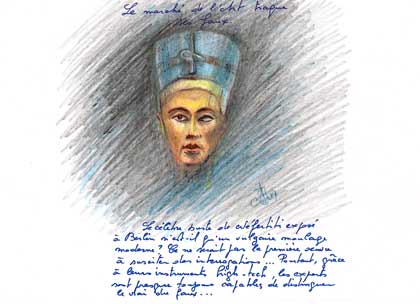 Le marché de l'Art traque
des faux
Le célèbre buste de Néfertiti exposé
à Berlin n'est-il qu'un vulgaire moulage
moderne? Ce ne serait pas la première
à susciter des interrogations... Pourtant, grâce
à leurs instruments high-tech, les experts
sont presque toujours capables de distinguer
le vrai du faux...